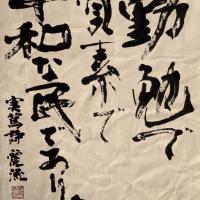 勤勉で
質素で
平和な民であり
実篤詩